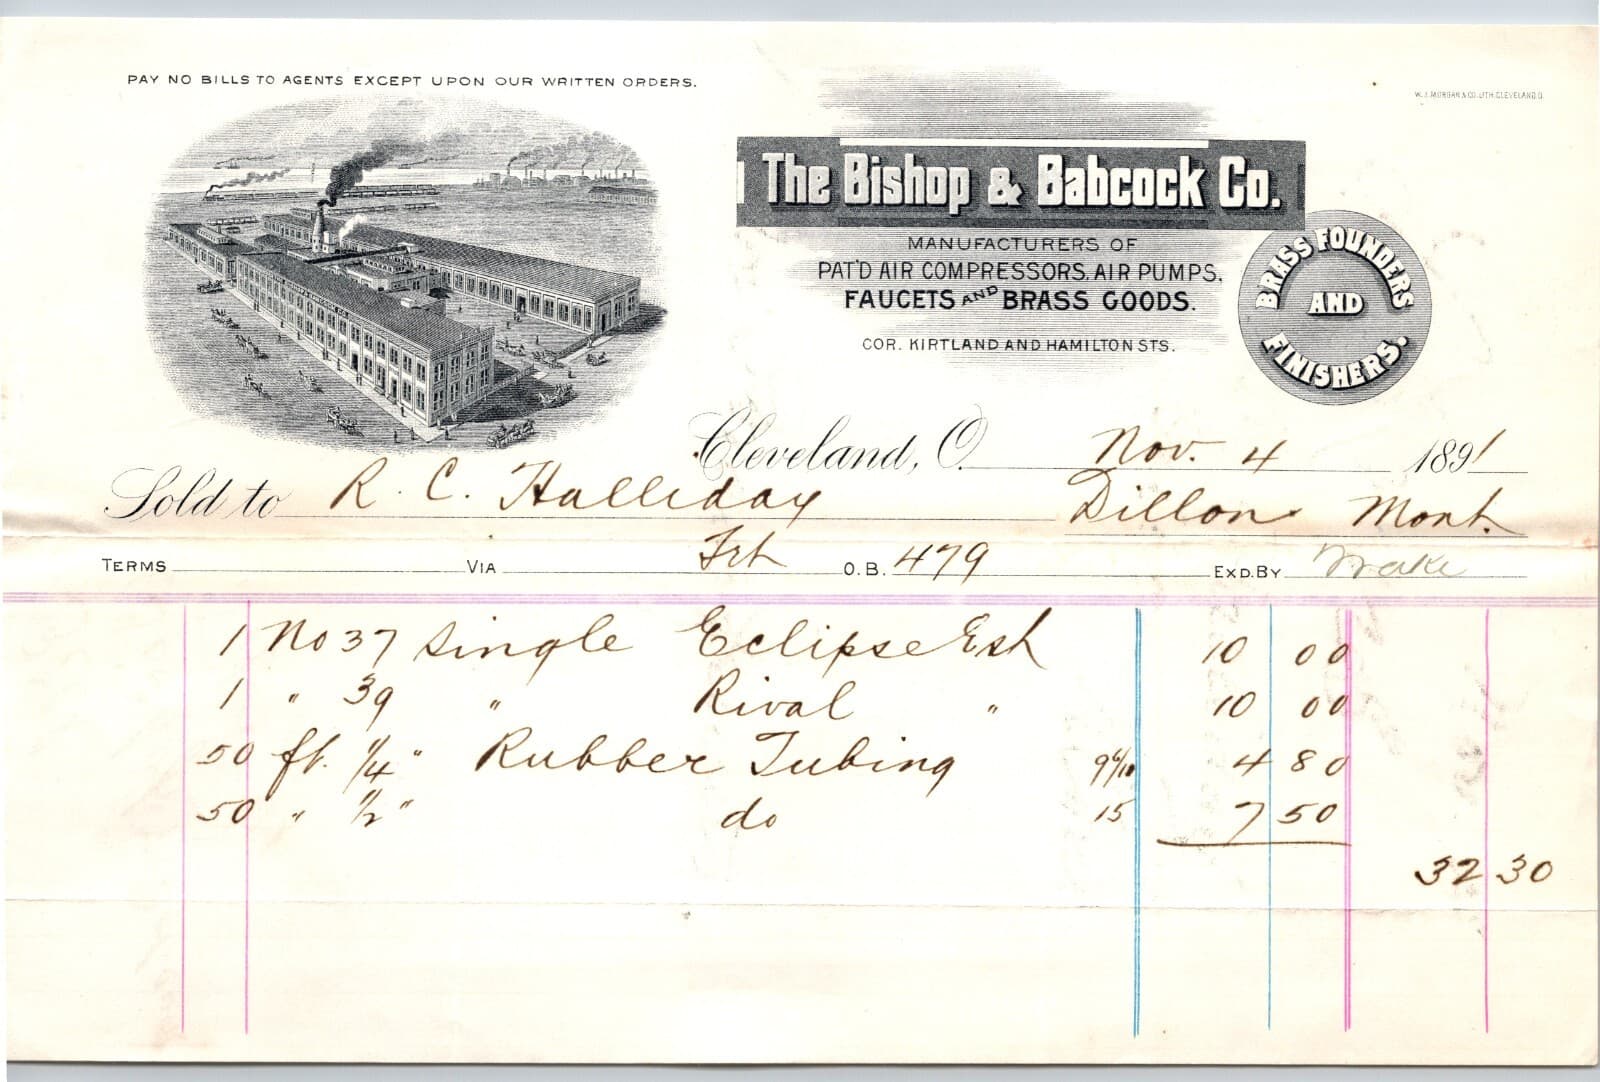 PAY NO BILLS TO AGENTS EXCEPT UPON OUR WRITTEN ORDERS.
W. J. MORGAN & CO. LITH. CLEVELAND, O.
The Bishop & Babcock Co.
MANUFACTURERS OF
PAT'D AIR COMPRESSORS, AIR PUMPS,
FAUCETS AND BRASS GOODS.
COR. KIRTLAND AND HAMILTON STS.
BRASS FOUNDERS
AND
FINISHERS.
Cleveland, O. Nov. 4 1891
Sold to R. C. Halliday Dillon Mont.
TERMS VIA Frt O.B. 479 EXD. BY
1 No 37 Single Eclipse Esh 10 00
1 " 39 " Rival " 10 00
50 ft. 1/4" Rubber Tubing 9 6/10 4 80
50 " 1/2" do 15 7 50
32 30